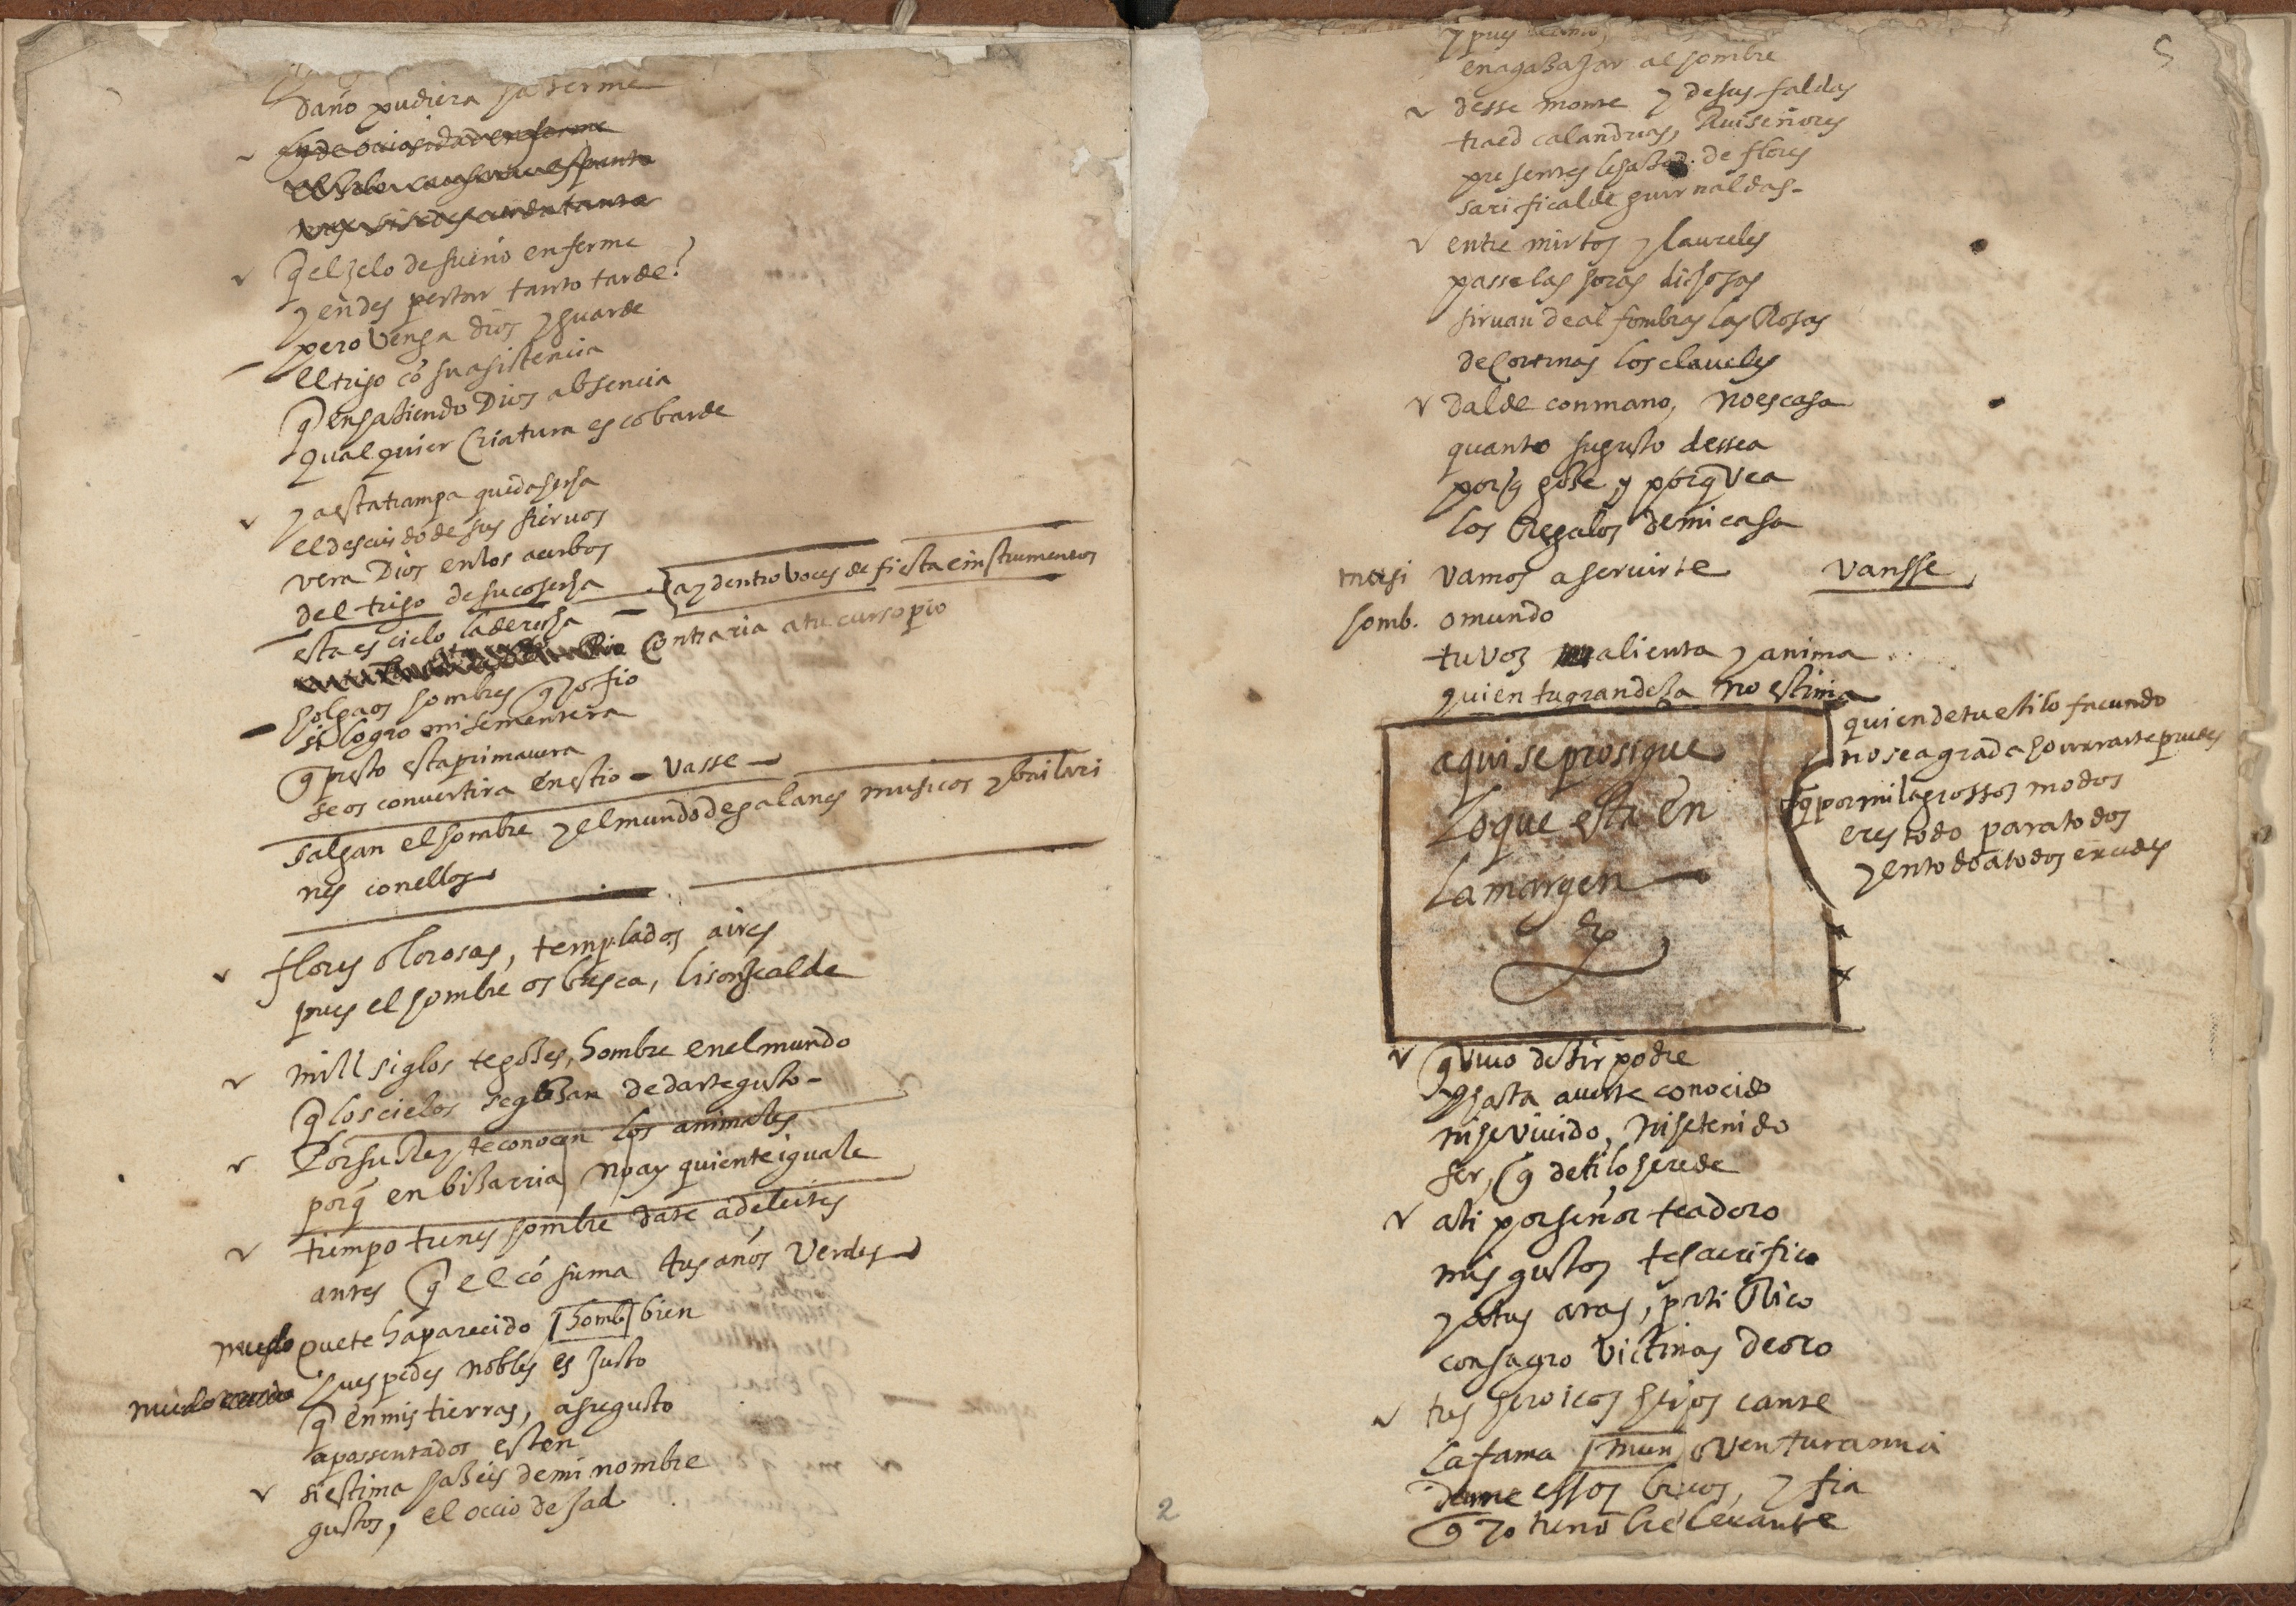 daño pudiera haserme
q̃ el zelo de sueño enferme
y en despertar tanto tarde?
pero venga dios y guarde
el trigo cō su asistencia
q̃ en haziendo Dios absencia
qualquier criatura es cobarde
y a esta trampa queda hecha
el descuido de sus siervos
vera Dios en los acerbos
del trigo de su cosecha
ay dentro voces de fiesta e instrumentos
esta es cielo la derecha
contraria a tu curso pio
holgaos hombres q̃ yo fio
si logro mi sementera
q̃ presto esta primavera
se os convertira en estio - vasse
salgan el hombre y el mundo de galanes musicos y bailari
nes con ellos
flores olorosas, templados aires
pues el hombre os busca, lisonjealde
mill siglos te gozes, hombre en el mundo
q̃ los cielos se gozan de darte gusto -
Por su Rey te conocen los animales
porq̃ en bizarria no ay quien te iguale
tiempo tienes hombre date a deleites
antes q̃ el cōsuma tus años verdes
mundo que te ha parecido homb bien
huespedes nobles es justo
q̃ en mis tierras, a su gusto
apassentados esten
si estima hazeis de mi nombre
gustos, el occio dexad
5
y pues
en agasajar al hombre
desse monte y de sus faldas
traed calandrias, Ruiseñores
presentes le hazed de flores
sacrificalde guirnaldas -
entre mirtos y laureles
passe las horas dichosas
sirvan de alfombras las Rosas
de cortinas los claveles
dalde con mano, no escasa
quanto su gusto dessea
porq̃ goze, y porq̃ vea
los Regalos de mi casa
musi vamos a servirte vansse
homb. o mundo
tu voz alienta y anima
quien tu grandeza no estima
quien de tu estilo facundo
no se agrada honrrarte puedes
q̃ por milagrossos modos
eres todo para todos
y en todo a todos excedes
aqui se prosigue
lo que esta en
la margen
q̃ vivo dezir podre
q̃ hasta averte conocido
ni he vivido, ni he tenido
ser, q̃ de ti lo herede
a ti por señor te adoro
mis gustos te sacrifico
y a tus aras, por ti Rico
consagro victimas de oro
tus heroicos hechos cante
la fama mun o ventura mia
dame essos braços, y fia
q̃ yo tuno he levante
2